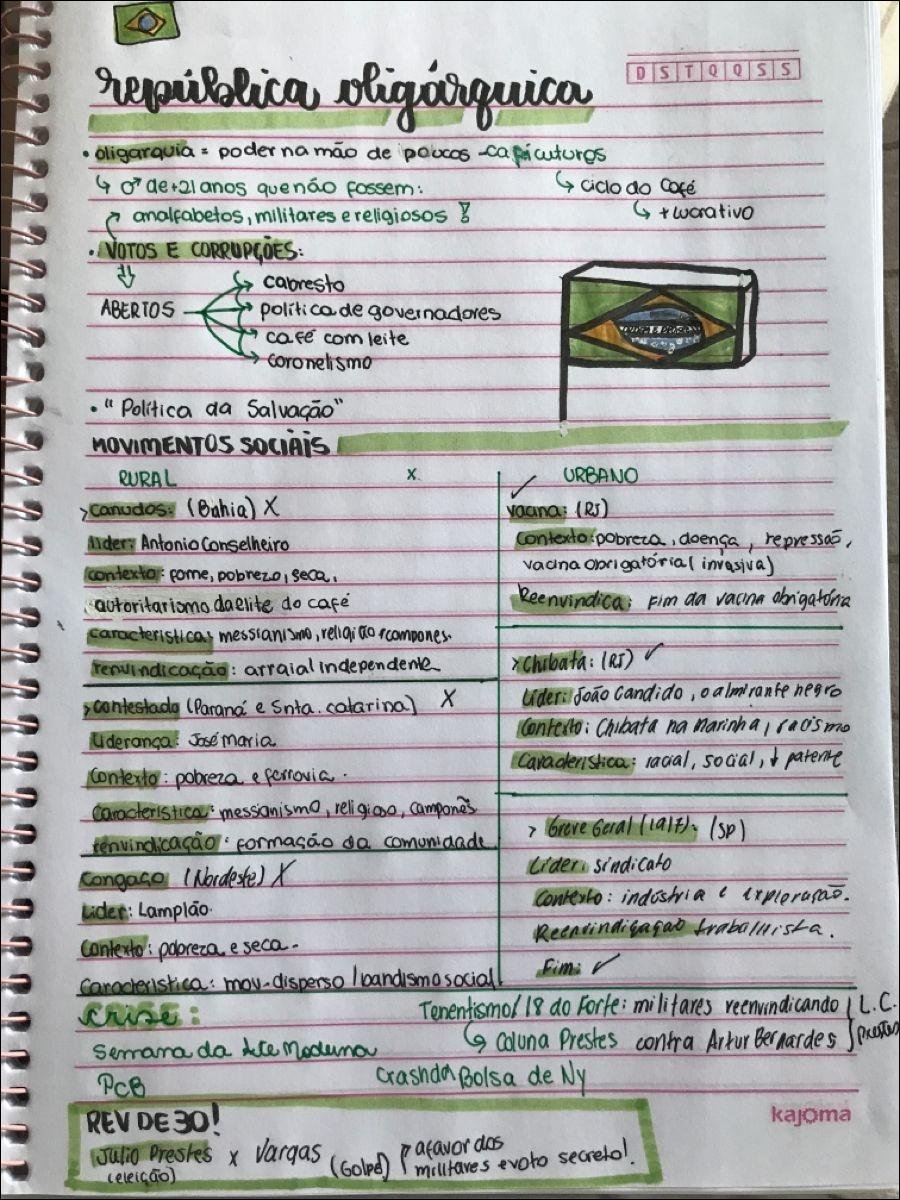 república oligárquica
D S T Q Q S S
• oligarquia = poder na mão de poucos - caficuturos
↳ ♂ de +21 anos que não fossem:
↳ ciclo do Café
analfabetos, militares e religiosos !
↳ + lucrativo
• VOTOS E CORRUPÇÕES:
ABERTOS
cabresto
política de governadores
café com leite
coronelismo
• "Política da Salvação"
MOVIMENTOS SOCIAIS
RURAL x URBANO
> canudos: (Bahia) X
líder: Antonio Conselheiro
contexto: fome, pobreza, seca,
autoritarismo da elite do café
caracteristica: messianismo, religião + campones.
renvindicação: arraial independente
> contestado (Paraná e Snta. catarina) X
Liderança: José Maria
Contexto: pobreza e ferrovia.
Característica: messianismo, religioso, camponês
renvindicação: formação da comunidade
Congaço (Nordeste) X
Lider: Lampião.
Contexto: pobreza e seca.
Característica: mov. disperso / bandismo social
✓
vacina: (RJ)
Contexto: pobreza, doença, repressão,
vacina obrigatória (invasiva)
Reenvindica: Fim da vacina obrigatória
> Chibata: (RJ) ✓
Líder: João Candido, o almirante negro
Contexto: Chibata na Marinha, racismo
Característica: racial, social, ↓ patente
> Greve Geral (1917): (SP)
Líder: sindicato
Contexto: indústria e exploração.
Reenvindicação trabalhista.
Fim: ✓
crise:
Tenentismo/ 18 do Forte: militares reenvindicando
L.C.
Semana da Arte Moderna
↳ Coluna Prestes contra Artur Bernardes
prestes
PCB
Crash da Bolsa de Ny
REV DE 30!
kajoma
Julio Prestes x Vargas
(eleição)
(Golpe)
a favor dos
militares e voto secreto!